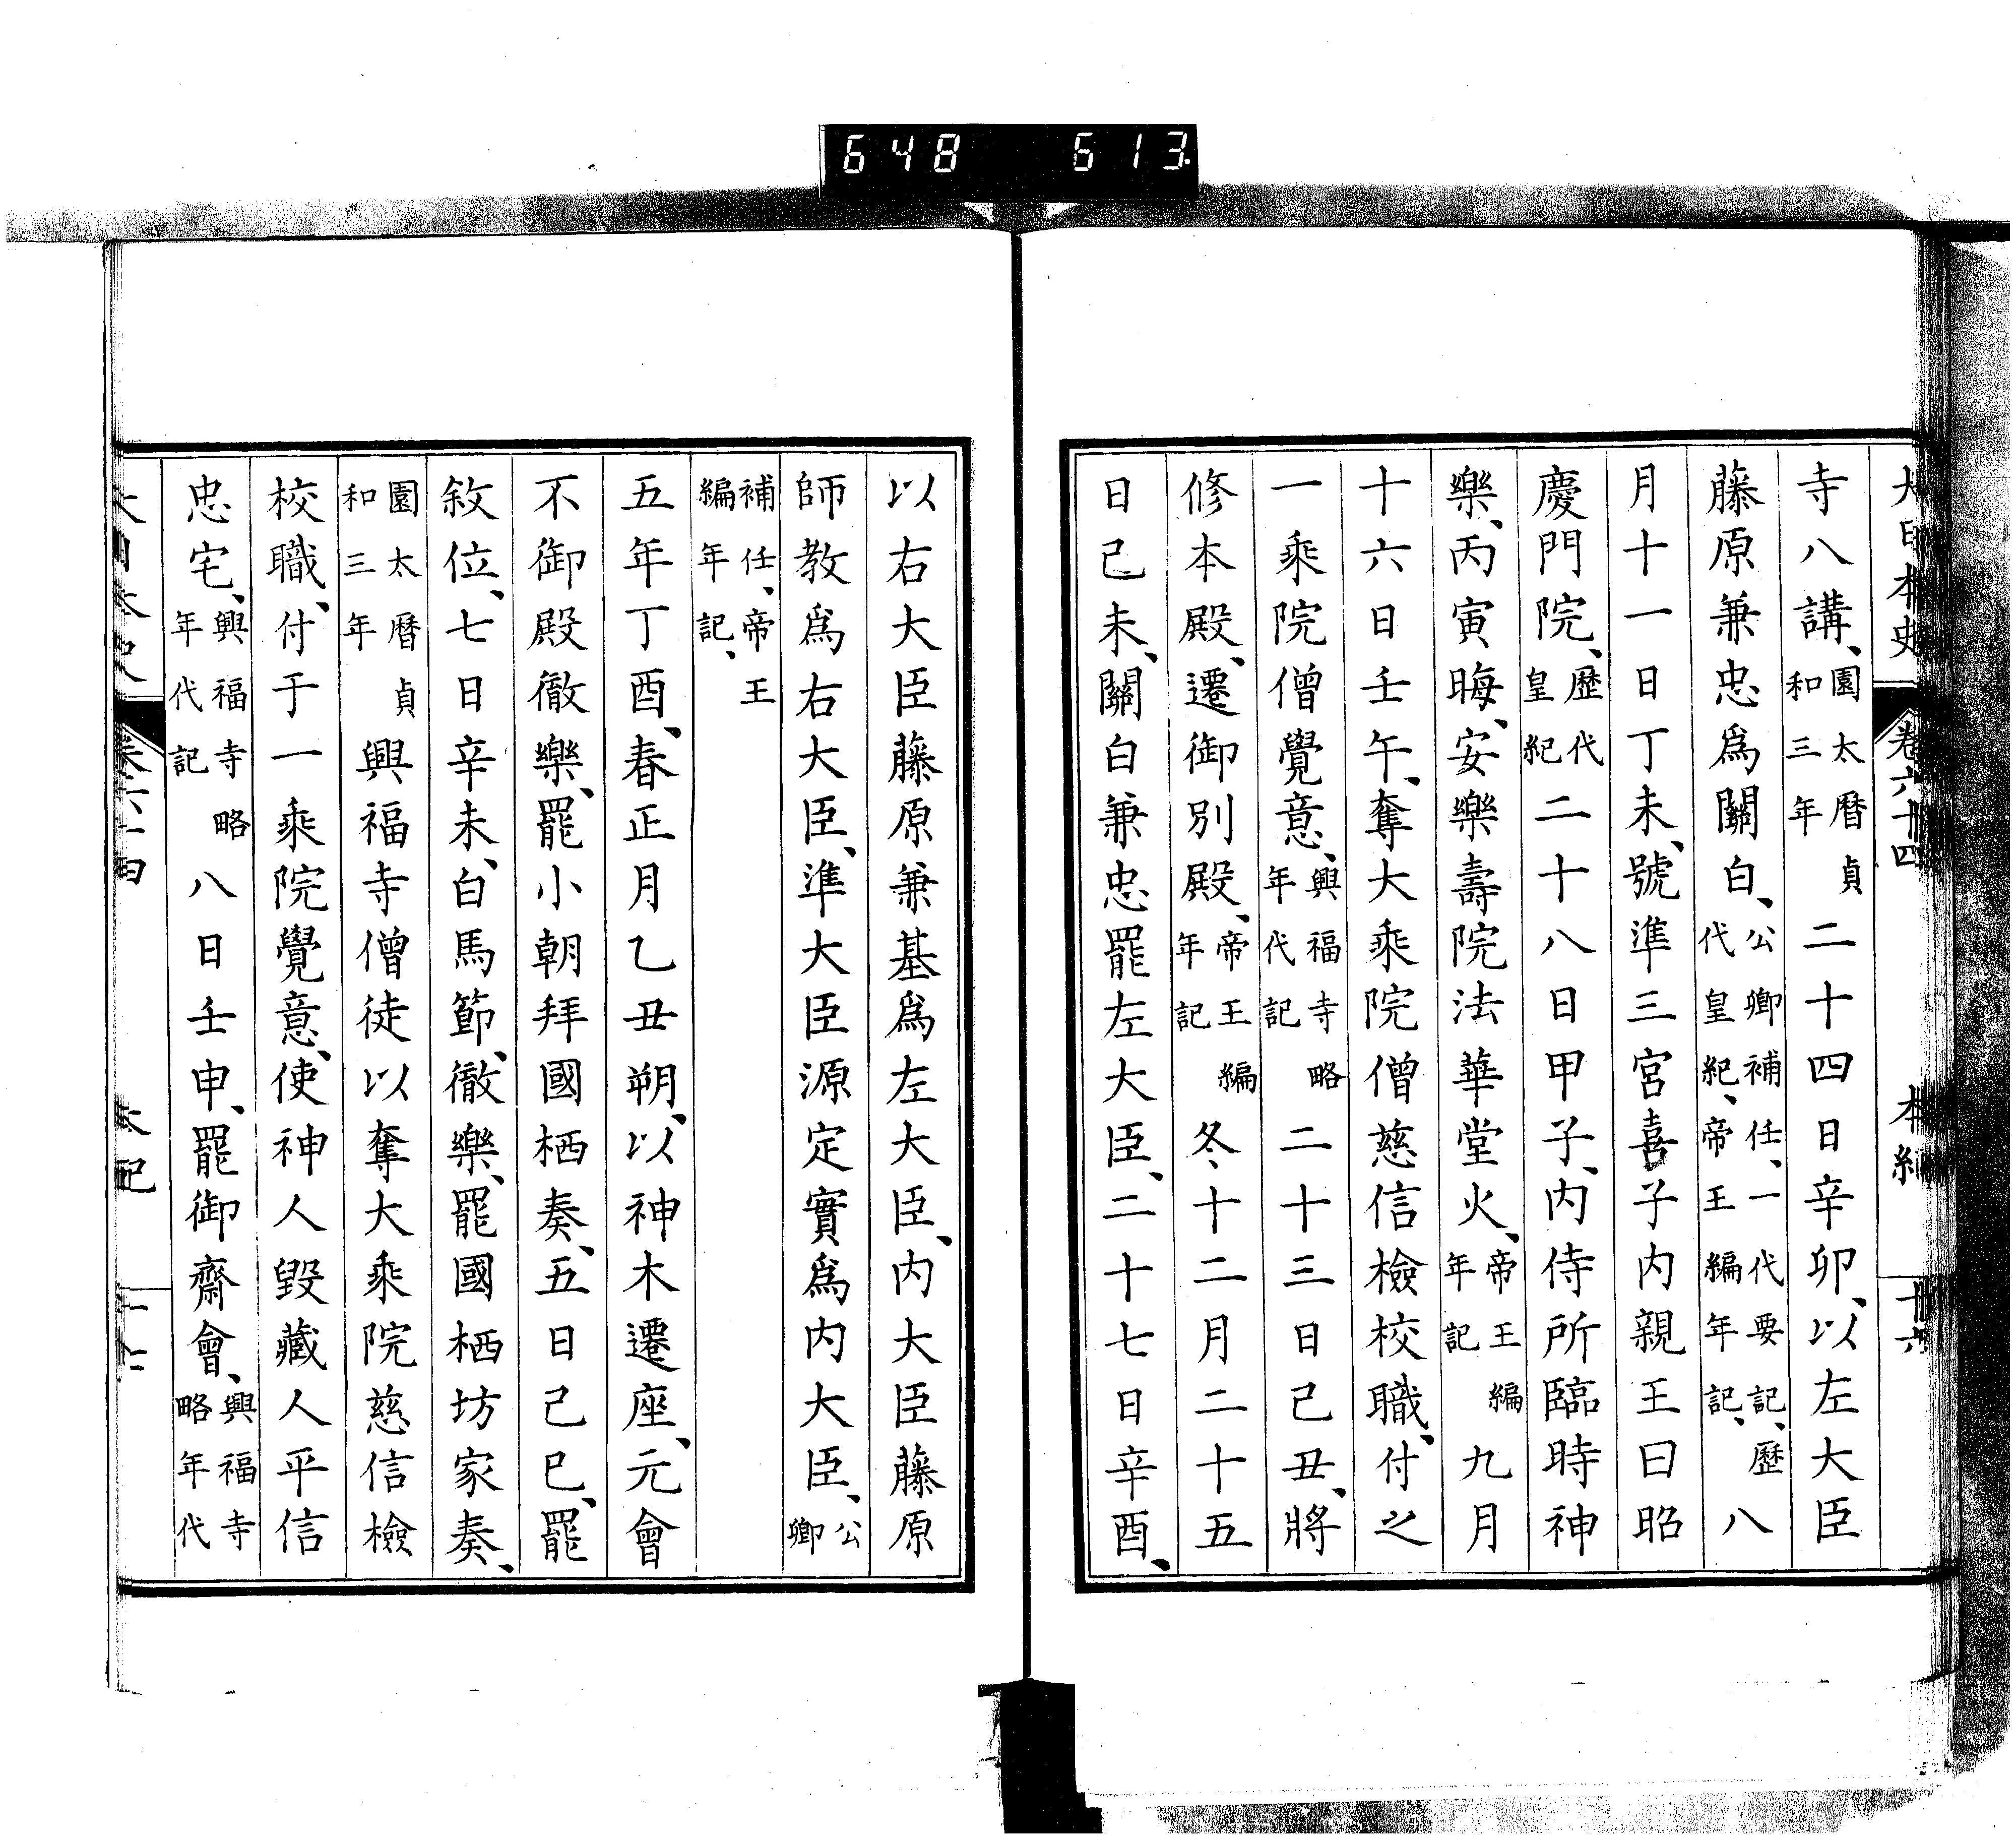 648 613
大日本史 卷六十四 本紀 十六
寺八講、園太曆貞和三年二十四日辛卯、以左大臣
藤原兼忠爲關白、公卿補任、一代要記、歷代皇紀、帝王編年記、八
月十一日丁未、號準三宮喜子內親王曰昭
慶門院、歷代皇紀二十八日甲子、內侍所臨時神
樂、丙寅晦、安樂壽院法華堂火、帝王編年記九月
十六日壬午、奪大乘院僧慈信檢校職、付之
一乘院僧覺意、興福寺略年代記二十三日己丑、將
修本殿、遷御別殿、帝王編年記冬、十二月二十五
日己未、關白兼忠罷左大臣、二十七日辛酉、
以右大臣藤原兼基爲左大臣、內大臣藤原
師教爲右大臣、準大臣源定實爲內大臣、公卿
補任、帝王編年記、
五年丁酉、春正月乙丑朔、以神木遷座、元會
不御殿徹樂、罷小朝拜國栖奏、五日己巳、罷
敘位、七日辛未、白馬節、徹樂、罷國栖坊家奏、
園太曆貞和三年興福寺僧徒以奪大乘院慈信檢
校職、付于一乘院覺意、使神人毀藏人平信
忠宅、興福寺略年代記八日壬申、罷御齋會、興福寺略年代
大日本史 卷六十四 本紀